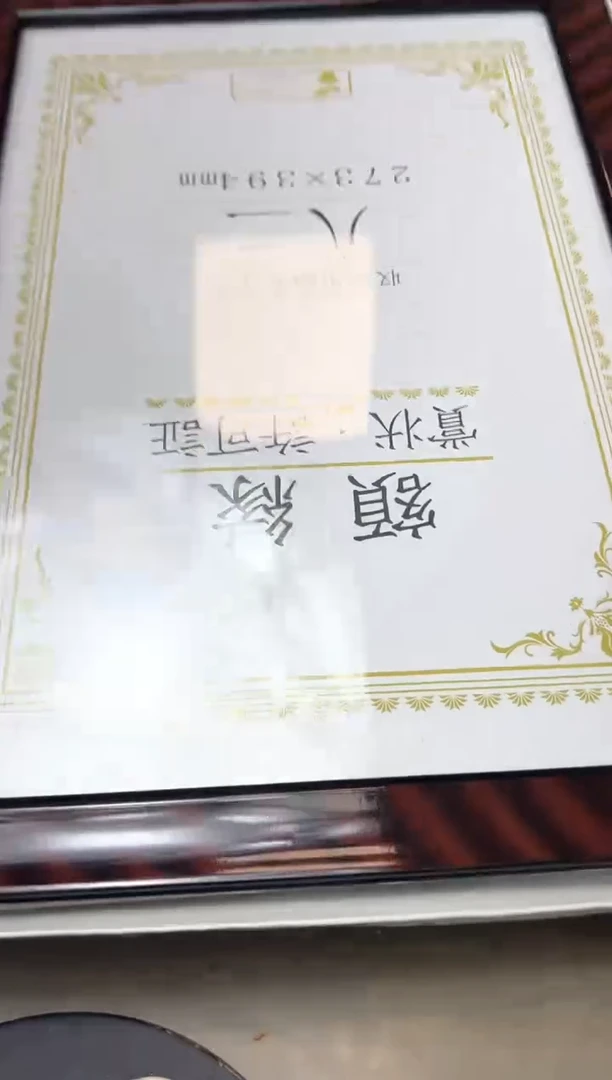 額縁
賞状・許可証
八二
273×394mm